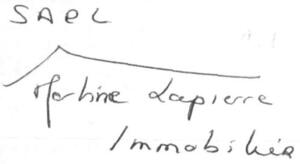 SARL
Martine Lapierre
Immobilier